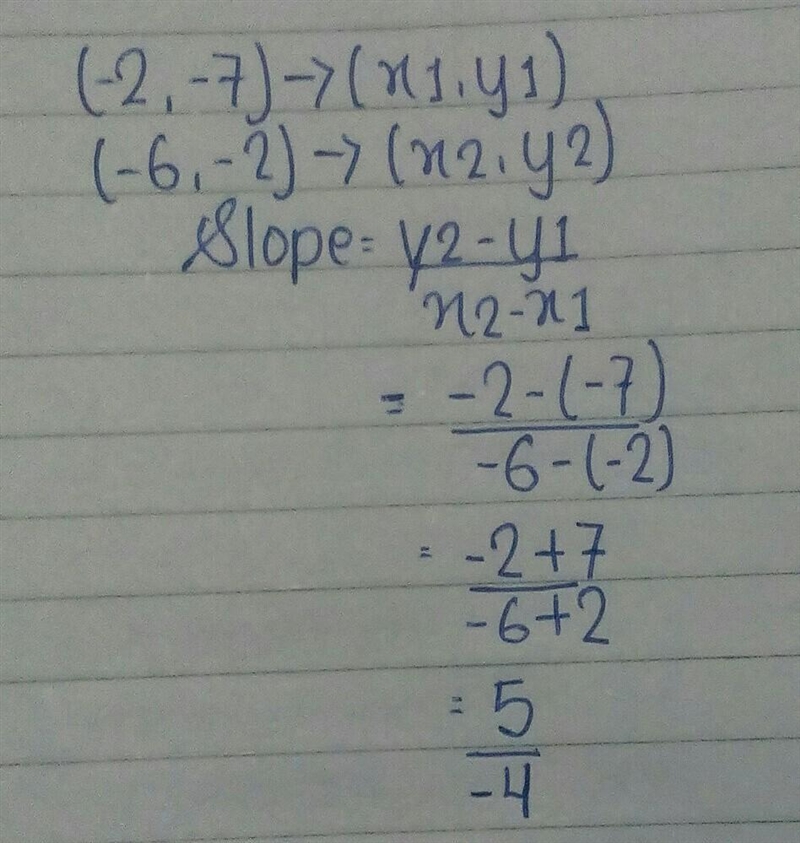 (-2, -7) → (x1, y1)
(-6, -2) → (x2, y2)
Slope = y2 - y1
x2 - x1
= -2 - (-7)
-6 - (-2)
= -2 + 7
-6 + 2
= 5
-4